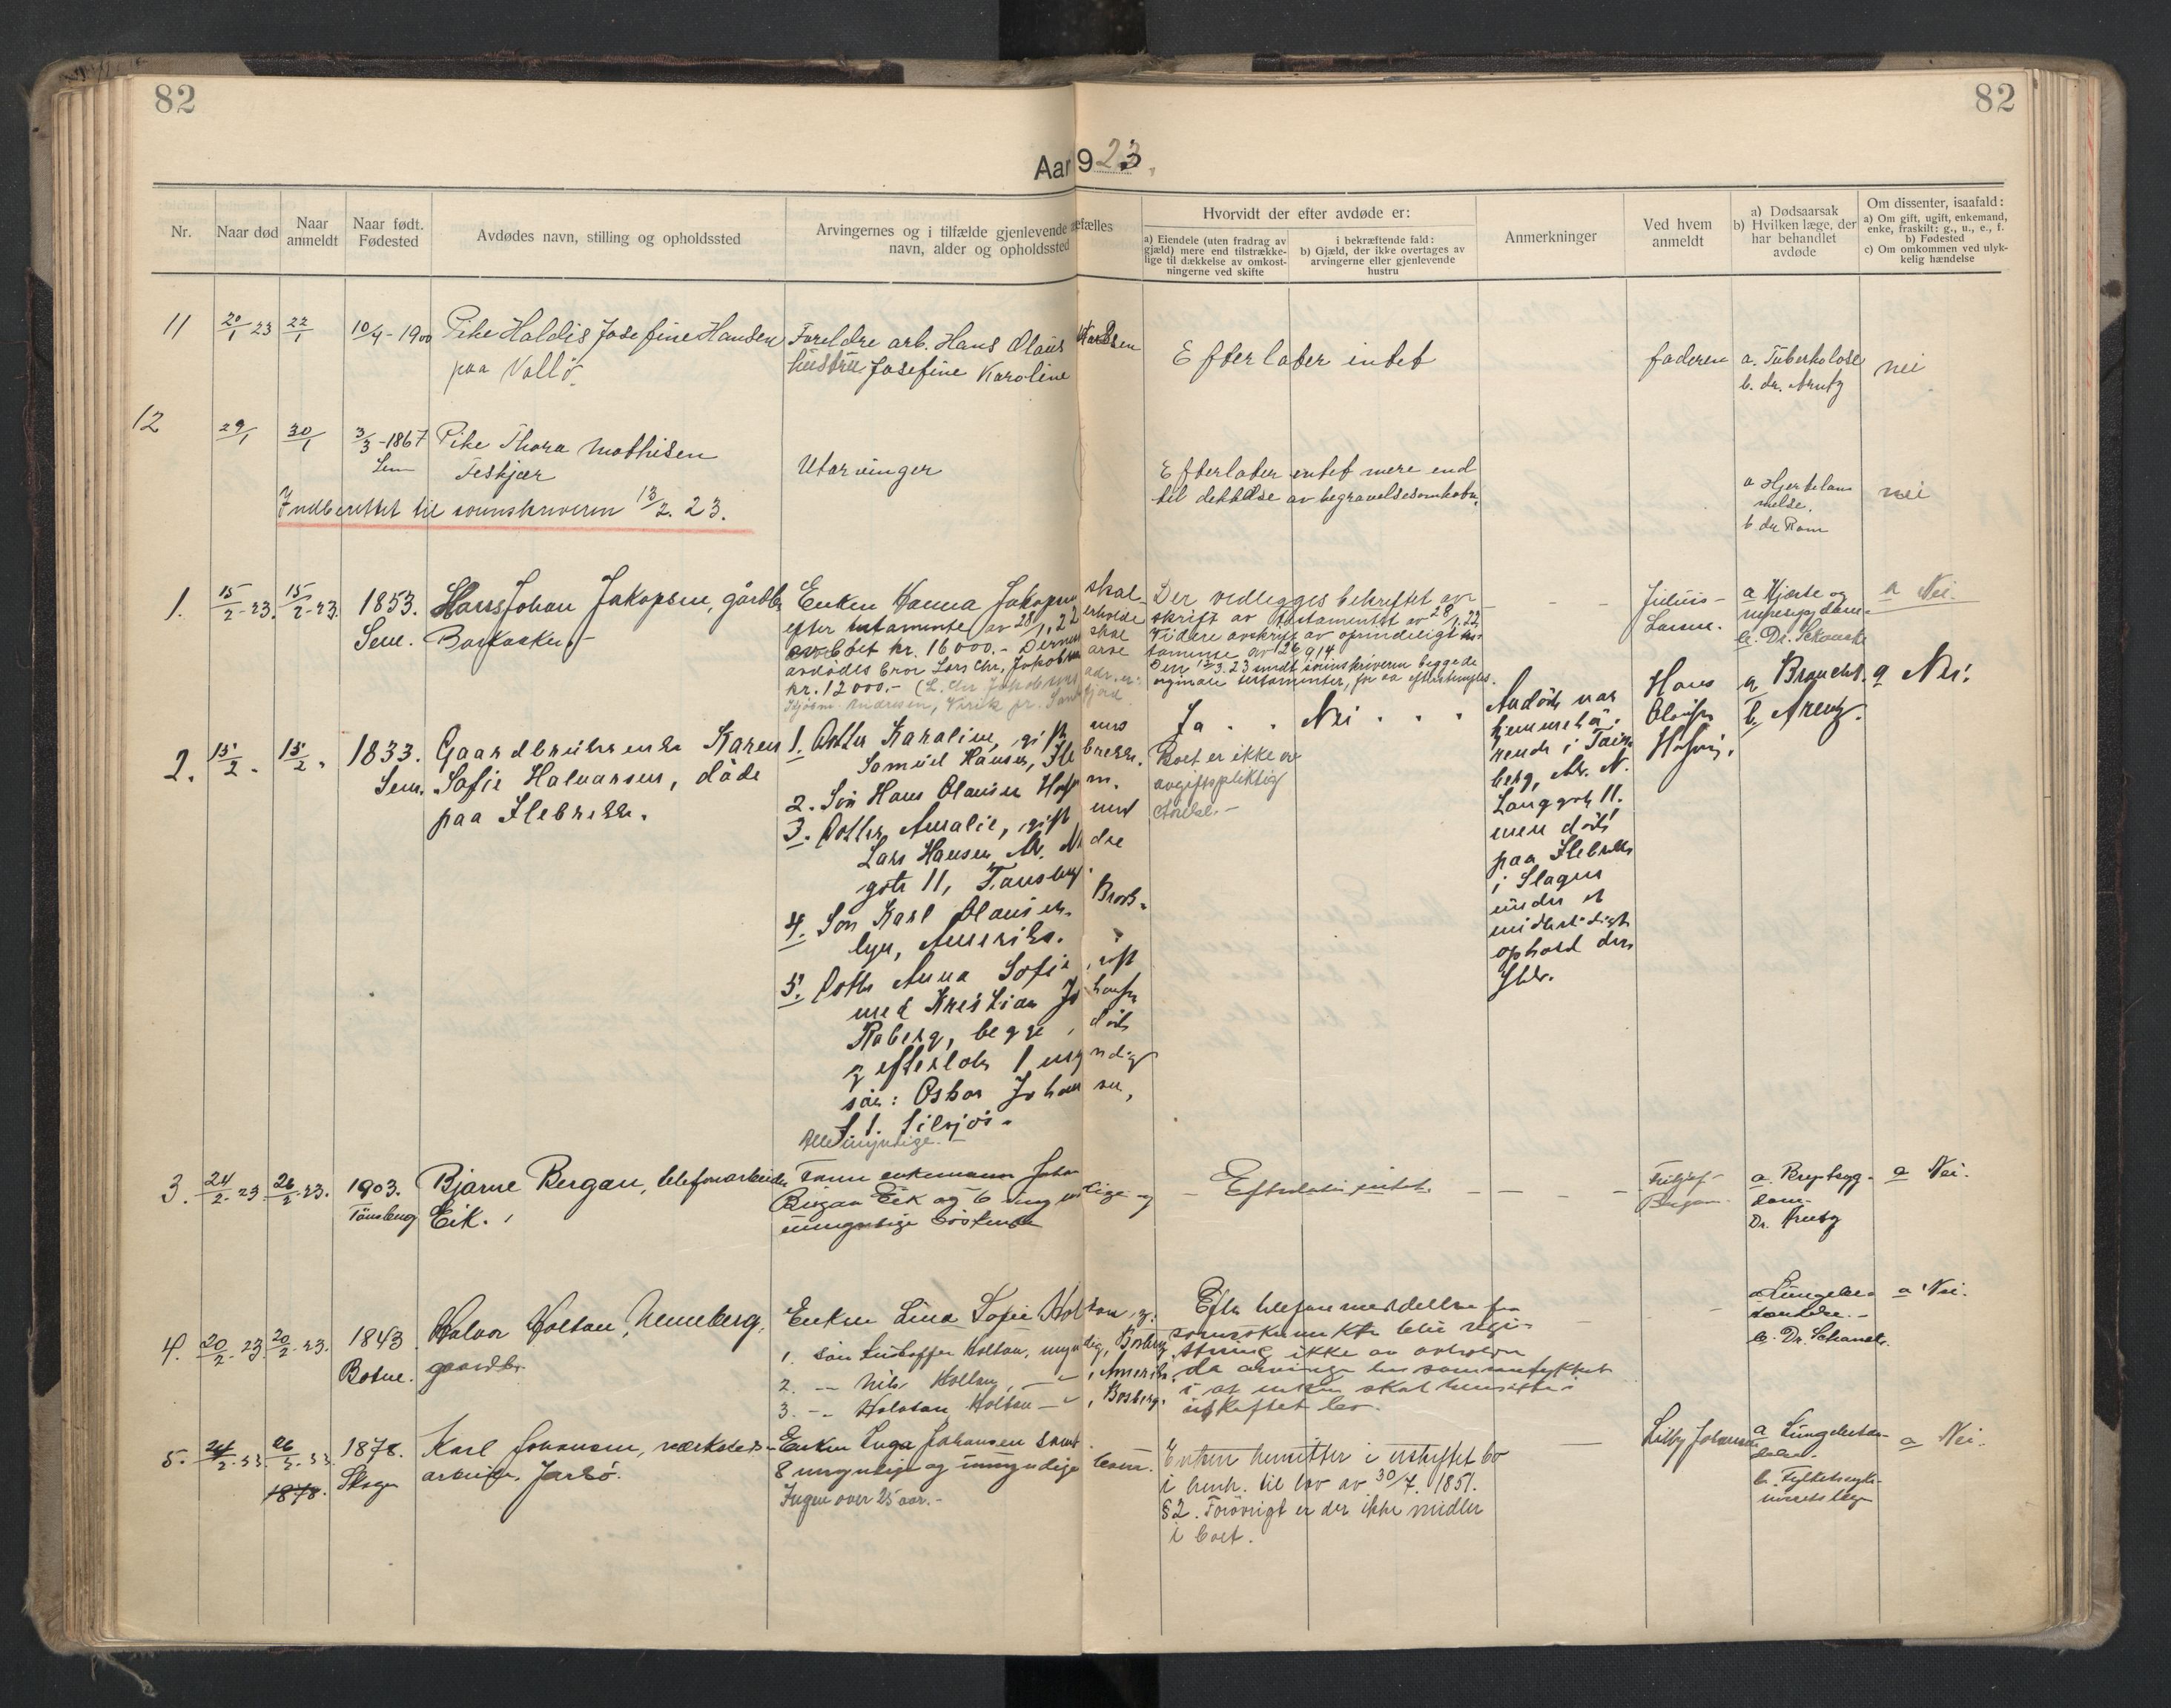 82
82
Aar 1923.
Nr.
Naar død
Naar anmeldt
Naar født. Fødested
Avdødes navn, stilling og opholdssted
Arvingernes og i tilfælde gjenlevende
navn, alder og opholdssted
Hvorvidt der efter avdøde er:
a) Eiendele (uten fradrag av
gjæld) mere end tilstrække-
lige til dækkelse av omkost-
ningerne ved skifte
i bekræftende fald:
b) Gjæld, der ikke overtages av
arvingerne eller gjenlevende
hustru
Anmerkninger
Ved hvem
anmeldt
a) Dødsaarsak
b) Hvilken læge, der
har behandlet
avdøde
Om dissenter, isaafald:
a) Om gift, ugift, enkemand,
enke, fraskilt: g., u., e., f.
b) Fødested
c) Om omkommen ved ulyk-
kelig hændelse
11 20/1-23 22/1 10/4-1900 Pike Haldis Josefine Hansen
paa Vallö.
Foreldre arb. Hans Olaus Karlsen
hustru Josefine Karoline
Efterlater intet
faderen
a. Tuberkolose
b. dr. Arentz
nei
12 29/1 30/1 3/3-1867
Sem
Pike Thora Mathisen
Feskjær
Utarvinger
Efterlater intet mere end
til dekkelse av begravelsesomkostn.
a Hjertelam
melse.
b. dr Ram
nei
Indberettet til sorenskriveren 13/2. 23.
1. 15/2-23. 15/2-23. 1853.
Sem.
Hans Johan Jakopsen, gårdbr.
Barkåker.
Enken Hanna Jakopsen skal
efter testamente av 28/1.22 erholde
kr. 16000.- Dernæst skal
avdødes bror Lars Chr. Jakobsen arve
kr. 12000.-
Der vedlegges bekreftet av
skrift av testamentet av 28/1.22.
Videre avskrift av oprindeligt tes-
tamente av 26/9 14
Den 13/3.23 sendt sorenskriveren begge de
orginale testamenter
Julius
Larsen.
a Hjerte og
nyresygdom
b. Dr. Schanche
a Nei.
2. 15/2. 15/2. 1833.
Sem.
Gaardbrukerenke Karen
Sofie Halvorsen, döde
paa Ilebrekke.
1. Datter Karoline, gift med
Samuel Hansen, Ilebrekk.
2. Sön Hans Olausen Hofsm.
3. Datter Amalie, gift med
Lars Hansen, Nedre
gate 11, Tønsberg.
4. Sön Karl Olausen, Brook-
lyn, Amerika.
5. Datter Anna Sofie, gift
med Kristian Johansen
Raberg, begge döde
g efterlater 1 myndig
sön: Oskar Johansen,
Alle myndige.
Ja . . Nei . . .
Boet er ikke av
avgiftspliktig
störrelse.-
Avdöde var
hjemmehö-
rende i Töns
berg, Ndr. N.
Langgate 11.
men döde
paa Ilebrekk
i Slagen
under et
midlertidigt
ophold der
Hans
Olausen
a Bronchit.
b. Arentz.
a Nei.
3. 24/2-23. 26/2-23. 1903.
Tønsberg
Bjarne Bergan, telefonarbeider
Eik.
Faren enkemann Johan
Bergan Eik og 6 myndige og
umyndige söskende
Efterlater intet.
Bergan
a. Brystsyg-
dom.
Dr. Arentz
a Nei.
4. 20/2-23. 20/2-23. 1843
Botne.
Halvor Holtan, Unneberg,
gaardbr.
Enken Lina Sofie Holtan, og
1. sön Kristoffer Holtan, myndig, Borberg
2. -- Nils Holtan, --, Amerika
3. -- Halvtan Holtan --, Borberg.
Efter telefonmeddelelse fra
sorenskriverkt. blir regi-
strering ikke av avholdes
da arvinger har samtykket
i at enken skal hensitte i
uskiftet bo.
a Lungebe-
tændelse.-
b. Dr. Schanche.
a Nei.
5. 24/2-23. 26/2-23. 1878.
1878.
Skoger
Karl Johansen, værksteds-
arbeider, Jarlsö.
Enken Inga Johansen samt
8 myndige og umyndige barn.
Ingen over 25 aar.-
Enken hensitter i uskiftet bo
i henh. til lov av 30/7. 1851.
§2. Forövrigt er der ikke midler
i boet.
Lilly Johansen
a Lungebetæn-
delse.
b. Fylkessyke-
husets læge
a Nei.